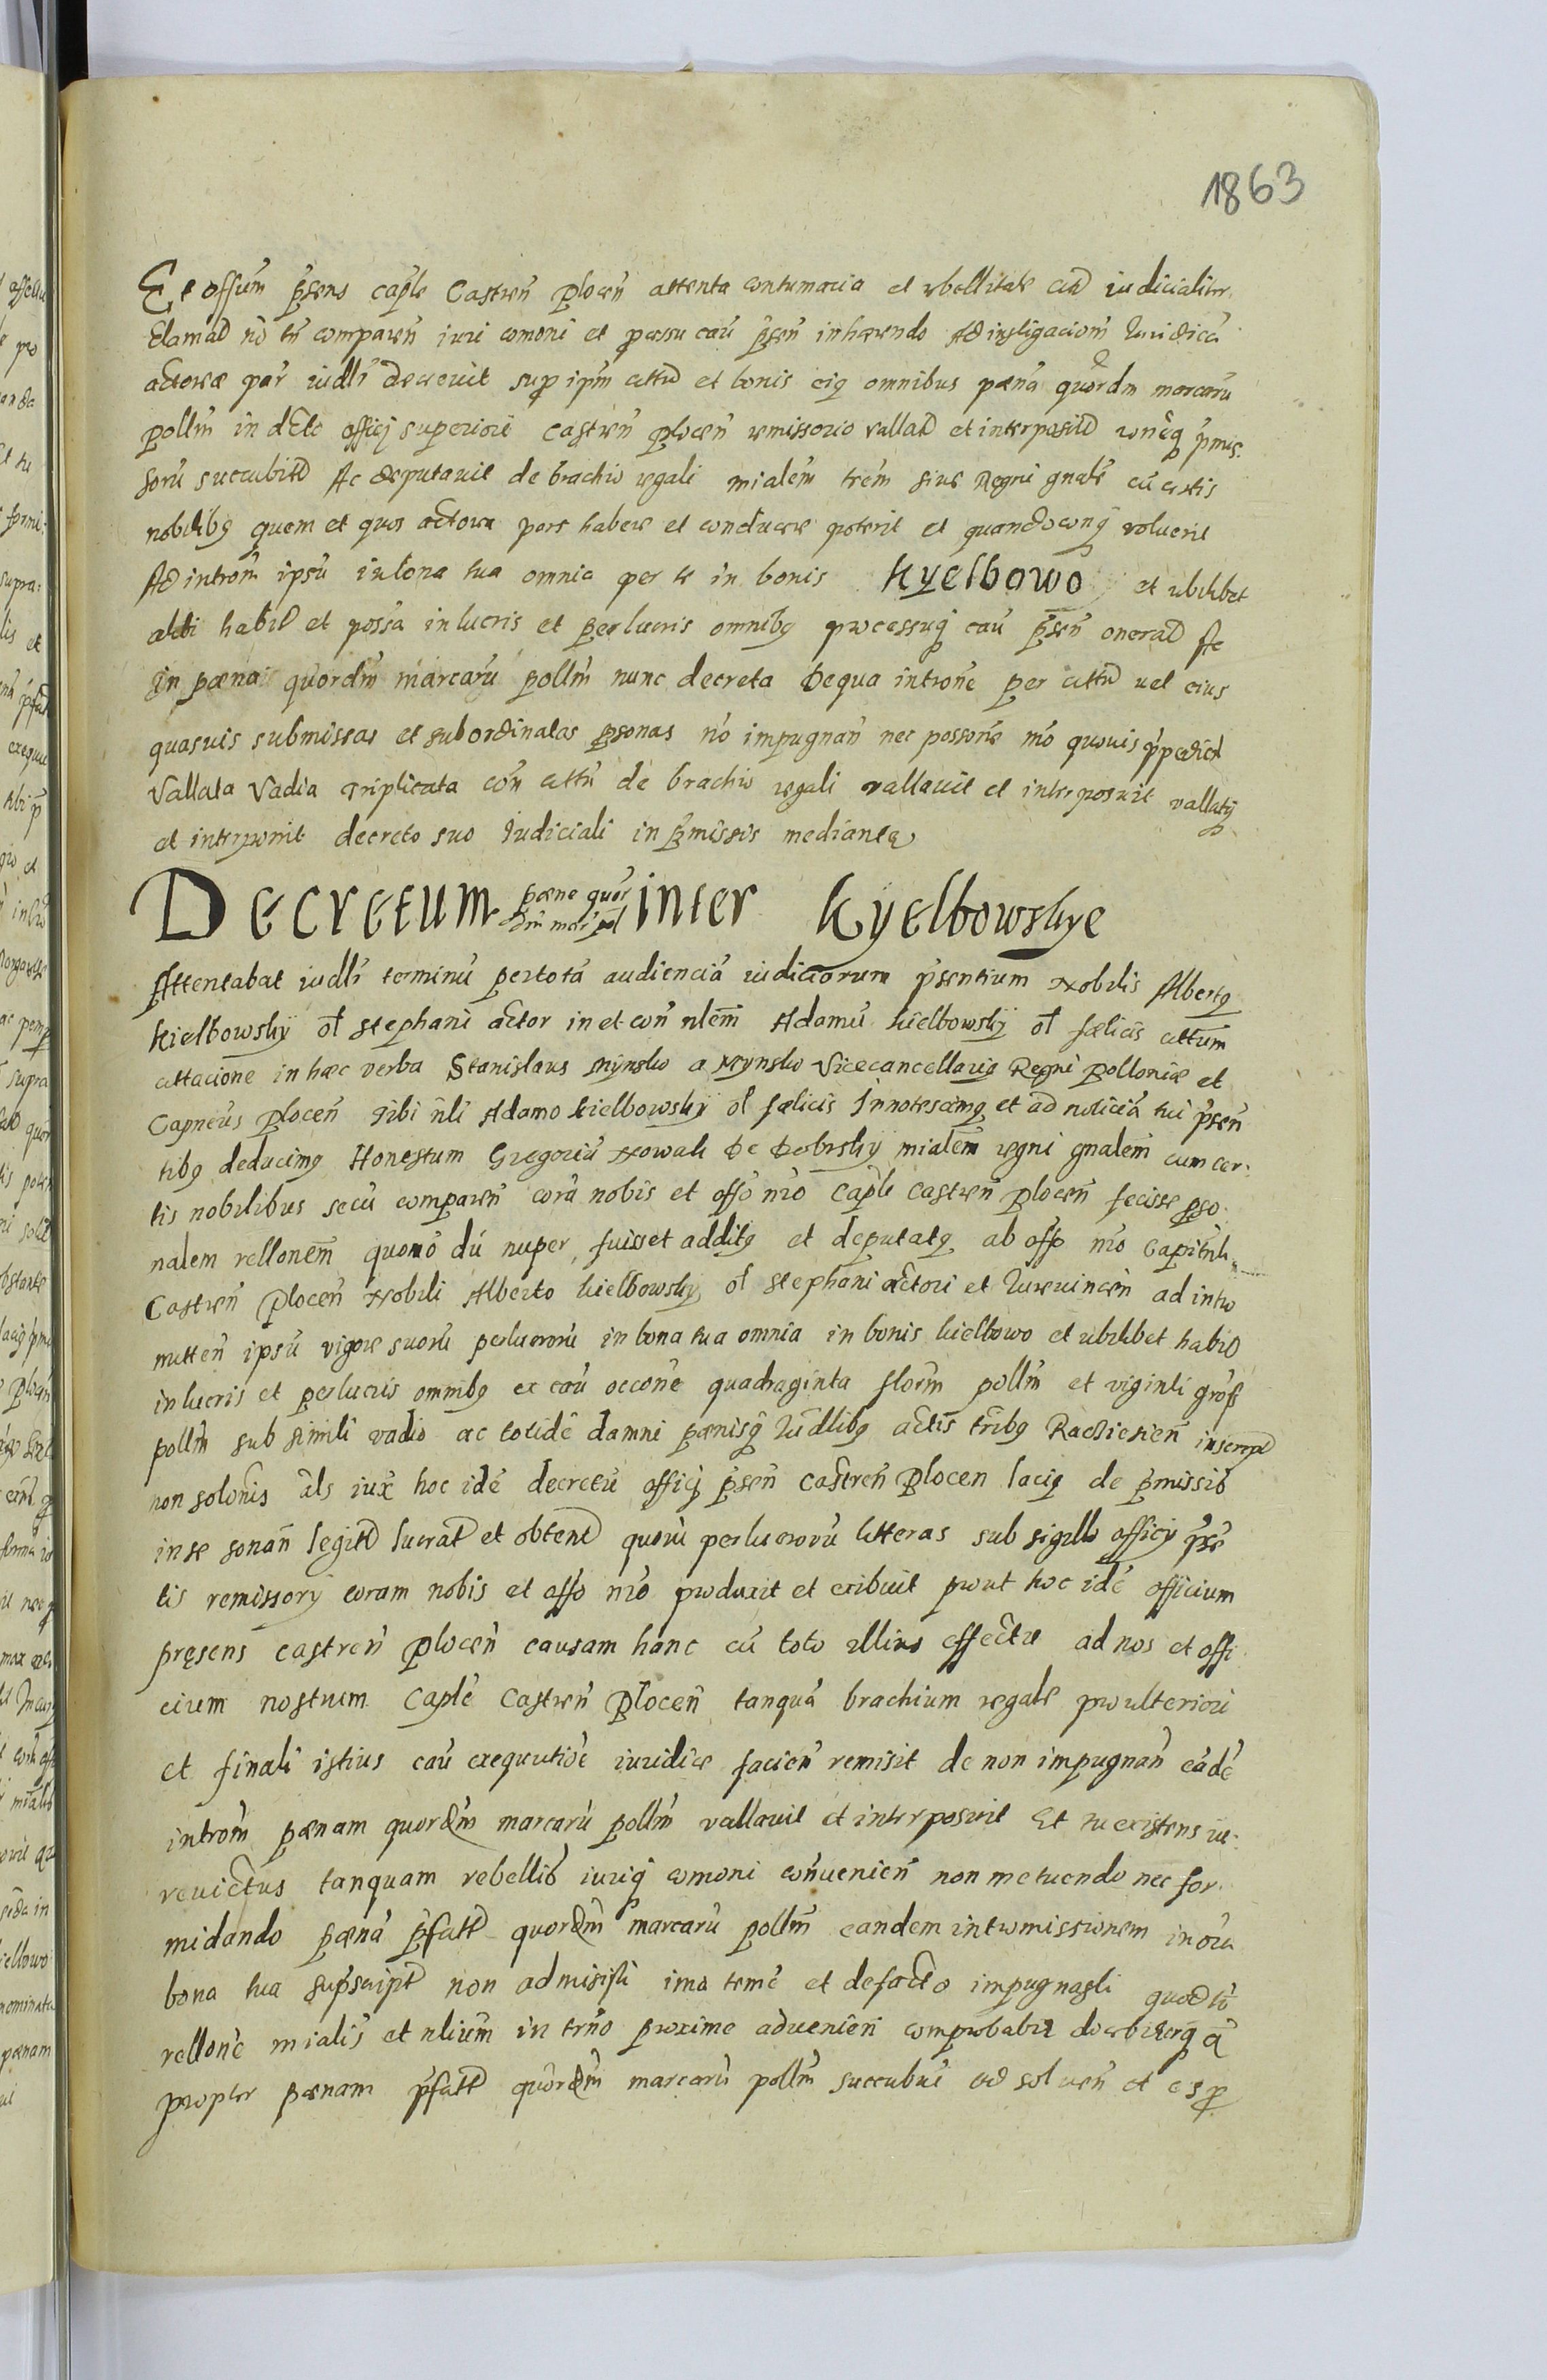 1863
Et offum pñsens caple Castreñ Ploceñ attenta contumacia et rebellitate citti iudicialiter
Clamati nõ tñ compareñ iuri comoni et pcessu cau psen inhærendo Ad instigacionem Iuridicã
actoreæ par iudlr decreuit sup ipm cittu et bonis eig omnibus pæna quordm marcaru
pollm in dcto officij superiori Castreñ Ploceñ remissorio vallat et interposit roneq pmis:
sorũ succubit Ac deputauit de brachio regali mialem trem siue Regni gnale cũ certis
nobilibg quem et quos actorea pars habere et conducere poterit et quandocunq voluerit
Ad introm ipsũ in bona tua omnia per te in bonis Kyelbowo et ubilibet
alibi habit et possa in lucris et perlucris omnibg processuq cau psen onerat Ac
In pæna quordm marcarũ pollm nunc decreta De qua introne per cittu uel eius
quasuis submissas et subordinatas psonas nõ impugnañ nec possone mõ quouis ppedieñ
Vallata Vadia triplicata con cittũ de brachio regali vallauit et interposuit vallatq
et interponit decreto suo Iudiciali in pmissis mediante
Decretum pæne quor dm mar pol inter Kyelbowskye
Attentabat iudlr terminũ per totã audienciã iudiciorum psentium Nobilis Albertg
Kielbowskÿ ol Stephani actor in et con nlem Adamũ Kielbowskÿ ol fælicis cittum
cittacione in hæc verba Stanislaus Mÿnsko a Mynsko Vicecancellarig Regni Polloniæ et
Capneus Ploceñ Tibi nli Adamo Kielbowskÿ ol fælicis Innotescimg et ad noticiã tui pseñ
tibg deducimg Honestum Gregoriũ Nowak De Dobrskÿ mialem regni gnalem cum cer:
tis nobilibus secũ compareñ corã nobis et offo nro caple Castreñ Ploceñ fecisse pso:
nalem rellonem quomõ dũ nuper fuisset additg et deputatg ab offo nro Capituli
Castreñ Ploceñ Nobili Alberto Kielbowsky ol Stephani actori et Iureuinceñ ad intro
mitteñ ipsũ vigore suorũ perlucrorũ in bona tua omnia in bonis Kielbowo et ubilibet habit
in lucris et perlucris omnibg ex cau occone quadraginta florm pollm et viginti gross
pollm sub simili vadio ac totide damni pænisq Iudlibg actis trribg Racziesien inscript
non solonis als iux hoc ide decretũ officij pseñ Castreñ Plocen lacig de pmissis
in se sonañ legitt lucrat et obtent quorũ perlucrorũ litteras sub sigillo officij pse
tis remissorij coram nobis et offo nro produxit et exibuit prout hoc idẽ officium
pręsens castreñ Ploceñ causam hanc cũ toto illius effectu ad nos et offi
cium nostrum Caple Castreñ Ploceñ tanquã brachium regale pro ulteriori
et finali istius cau exequutiõe iuridice facieñ remisit de non impugnañ eãdẽ
introm pænam quordm marcarũ pollm vallauit et interposuit Et tu existens iu:
reuictus tanquam rebellis iuriq comoni conuenieñ non metuendo nec for:
midando pænã pfatt quordm marcarũ pollm eandem intromissionem in oĩa
bona tua supscript non admisisti imo teme et de facto impugnasti quod tr
rellone mialis et nlium in trno proxime adueñieñ comprobabit docebiterq
propter pænam pfatt quordm marcarũ pollm succubui ad solueñ et